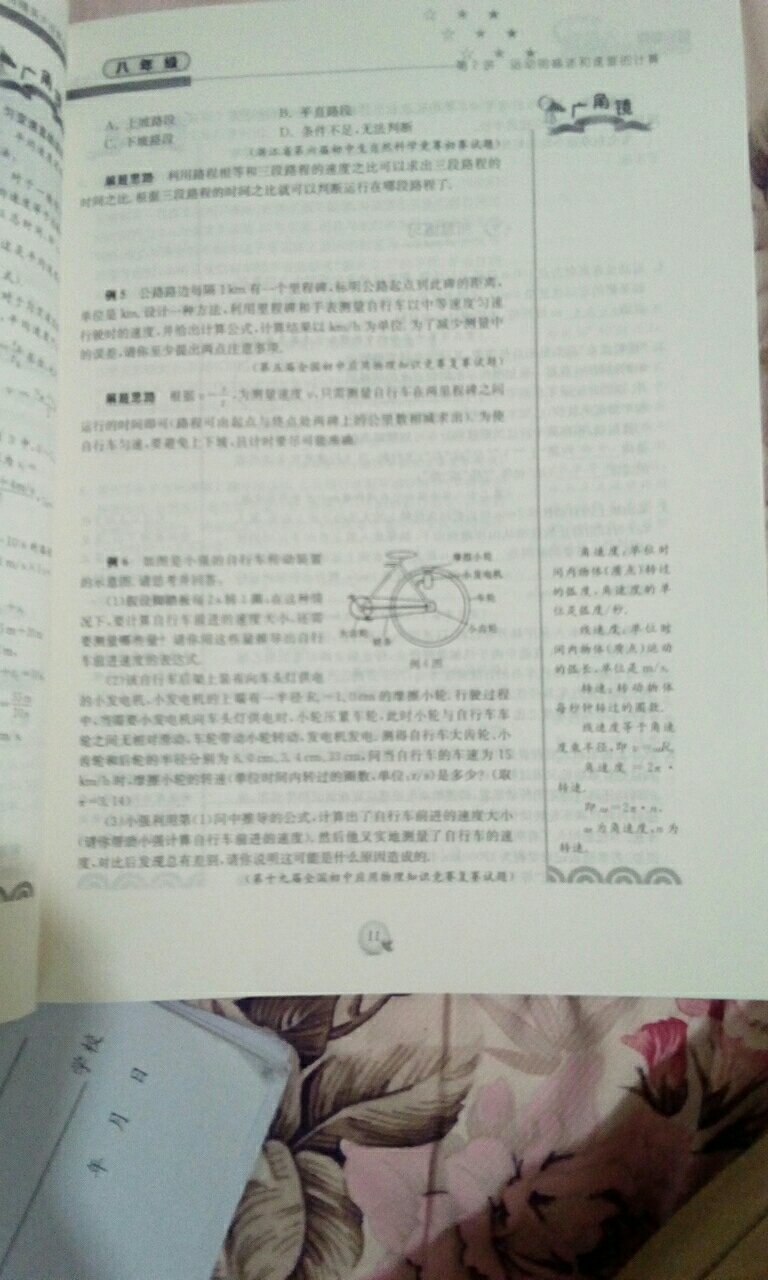 八年级
第2讲 运动的描述和速度的计算
A. 上坡路段 B. 平直路段
C. 下坡路段 D. 条件不足,无法判断
(浙江省第六届初中生自然科学竞赛初赛试题)
解题思路 利用路程相等和三段路程的速度之比可以求出三段路程的
时间之比,根据三段路程的时间之比就可以判断运行在哪段路程了.
例5 公路路边每隔1 km有一个里程碑,标明公路起点到此碑的距离,
单位是 km.设计一种方法,利用里程碑和手表测量自行车以中等速度匀速
行驶时的速度,并给出计算公式,计算结果以 km/h 为单位.为了减少测量中
的误差,请你至少提出两点注意事项.
(第五届全国初中应用物理知识竞赛复赛试题)
解题思路 根据 v=s/t,为测量速度 v,只需测量自行车在两里程碑之间
运行的时间即可(路程可由起点与终点处两碑上的公里数相减求出).为使
自行车匀速,要避免上下坡,且计时要尽可能准确.
例6 如图是小强的自行车传动装置
的示意图.请思考并回答.
(1)假设脚踏板每2 s转1圈,在这种情
况下,要计算自行车前进的速度大小,还需
要测量哪些量?请你用这些量推导出自行
车前进速度的表达式.
(2)该自行车后架上装有向车头灯供电
的小发电机,小发电机的上端有一半径R₀=1.0 cm的摩擦小轮.行驶过程
中,当需要小发电机向车头灯供电时,小轮压紧车轮,此时小轮与自行车车
轮之间无相对滑动,车轮带动小轮转动,发电机发电.测得自行车大齿轮、小
齿轮和后轮的半径分别为8.0 cm、3.4 cm、33 cm,问当自行车的车速为15
km/h时,摩擦小轮的转速(单位时间内转过的圈数,单位:r/s)是多少?(取
π=3.14)
(3)小强利用第(1)问中推导的公式,计算出了自行车前进的速度大小
(请你帮助小强计算自行车前进的速度).然后他又实地测量了自行车的速
度,对比后发现总有差别,请你说明这可能是什么原因造成的.
(第十九届全国初中应用物理知识竞赛复赛试题)
摩擦小轮
小发电机
车轮
小齿轮
大齿轮
链条
例6图
广角镜
角速度:单位时
间内物体(质点)转过
的弧度,角速度的单
位是弧度/秒.
线速度:单位时
间内物体(质点)运动
的弧长,单位是 m/s.
转速:转动物体
每秒钟转过的圈数.
线速度等于角速
度乘半径,即 v=ωR,
角速度=2π·
转速.
即 ω=2π·n.
ω为角速度,n为
转速.
11
学校
年 月 日